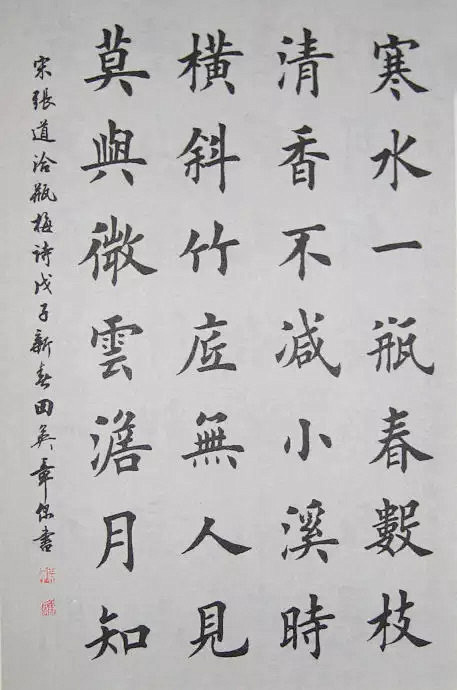 寒水一瓶春數枝
清香不减小溪時
橫斜竹底無人見
莫與微雲澹月知
宋張道洽瓶梅詩戊子新春田英章書